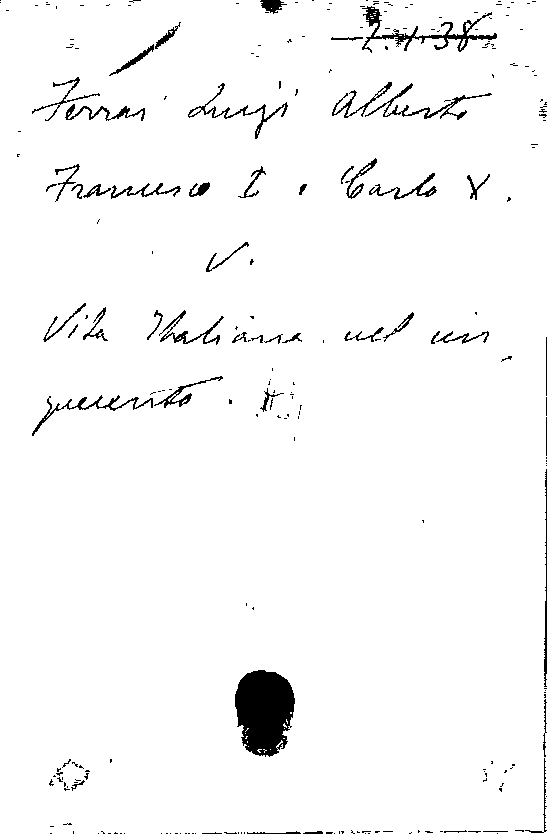 2.4.38
Ferrai Luigi Alberto
Francesco I e Carlo V.
V.
Vita Italiana nel cin
quecento.